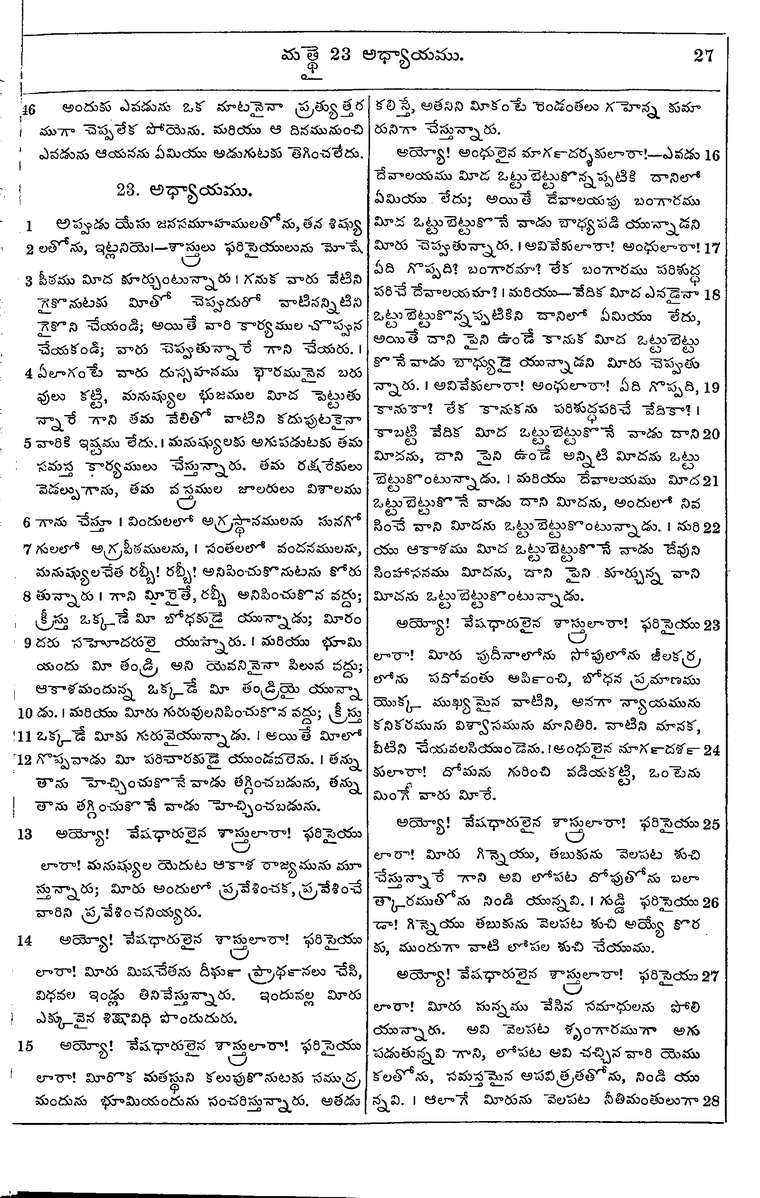 మత్థై 23 అధ్యాయము. 27
46 అందుకు ఎవడును ఒక మాటనైనా ప్రత్యుత్తర
ముగా చెప్పలేక పోయెను. మరియు ఆ దినమునుంచి
ఎవడును ఆయనను ఏమియు అడుగుటకు తెగించలేదు.
23. అధ్యాయము.
1 అప్పుడు యేసు జనసమూహములతోను, తన శిష్యు
2 లతోను, ఇట్లనియె।—శాస్త్రులు ఫరిసైయులును మోషే
3 పీఠము మీద కూర్చుంటున్నారు। గనుక వారు వేటిని
గైకొనుటకు మీతో చెప్పుదురో వాటినన్నిటిని
గైకొని చేయండి; అయితే వారి కార్యముల చొప్పున
చేయకండి; వారు చెప్పుతున్నారే గాని చేయరు.।
4 ఏలాగంటే వారు దుస్సహనము భారమునైన బరు
వులు కట్టి, మనుష్యుల భుజముల మీద పెట్టుతు
న్నారే గాని తమ వేలితో వాటిని కదుపుటకైనా
5 వారికి ఇష్టము లేదు.। మనుష్యులకు అగుపడుటకు తమ
సమస్త కార్యములు చేస్తున్నారు. తమ రక్షరేకులు
వెడల్పుగాను, తమ వస్త్రముల జాలరులు విశాలము
6 గాను చేస్తూ। విందులలో అగ్రస్థానములను సునగో
7 గులలో అగ్రపీఠములను,। సంతలలో వందనములను,
మనుష్యులచేత రబ్బీ! రబ్బీ! అనిపించుకొనుటను కోరు
8 తున్నారు। గాని మీరైతే, రబ్బీ అనిపించుకొన వద్దు;
క్రీస్తు ఒక్కడే మీ బోధకుడై యున్నాడు; మీరం
9 దరు సహోదరులై యున్నారు.। మరియు భూమి
యందు మీ తండ్రి అని యెవనినైనా పిలువ వద్దు;
ఆకాశమందున్న ఒక్కడే మీ తండ్రియై యున్నా
10 డు.। మరియు మీరు గురువులనిపించుకొన వద్దు; క్రీస్తు
11 ఒక్కడే మీకు గురువైయున్నాడు.। అయితే మీలో
12 గొప్పవాడు మీ పరిచారకుడై యుండవలెను.। తన్ను
తాను హెచ్చించుకొనే వాడు తగ్గించబడును, తన్ను
తాను తగ్గించుకొనే వాడు హెచ్చించబడును.
13 అయ్యో! వేషధారులైన శాస్త్రులారా! ఫరిసైయు
లారా! మనుష్యుల యెదుట ఆకాశ రాజ్యమును మూ
స్తున్నారు; మీరు అందులో ప్రవేశించక, ప్రవేశించే
వారిని ప్రవేశించనియ్యరు.
14 అయ్యో! వేషధారులైన శాస్త్రులారా! ఫరిసైయు
లారా! మీరు మిషచేతను దీర్ఘ ప్రార్థనలు చేసి,
విధవల ఇండ్లు తినివేస్తున్నారు. ఇందువల్ల మీరు
ఎక్కువైన శిక్షావిధి పొందుదురు.
15 అయ్యో! వేషధారులైన శాస్త్రులారా! ఫరిసైయు
లారా! మీరొక మతస్థుని కలుపుకొనుటకు సముద్ర
మందును భూమియందును సంచరిస్తున్నారు. అతడు
కలిస్తే, అతనిని మీకంటే రెండంతలు గహెన్న కుమా
రునిగా చేస్తున్నారు.
అయ్యో! అంధులైన మార్గదర్శకులారా!—ఎవడు 16
దేవాలయము మీద ఒట్టుబెట్టుకొన్నప్పటికి దానిలో
ఏమియు లేదు; అయితే దేవాలయపు బంగారము
మీద ఒట్టుబెట్టుకొనే వాడు బాధ్యపడి యున్నాడని
మీరు చెప్పుతున్నారు.। అవివేకులారా! అంధులారా! 17
ఏది గొప్పది? బంగారమా? లేక బంగారము పరిశుద్ధ
పరిచే దేవాలయమా?। మరియు—వేదిక మీద ఎవడైనా 18
ఒట్టుబెట్టుకొన్నప్పటికిని దానిలో ఏమియు లేదు,
అయితే దాని పైని ఉండే కానుక మీద ఒట్టుబెట్టు
కొనే వాడు బాధ్యుడై యున్నాడని మీరు చెప్పుతు
న్నారు.। అవివేకులారా! అంధులారా! ఏది గొప్పది, 19
కానుకా? లేక కానుకను పరిశుద్ధపరిచే వేదికా?।
కాబట్టి వేదిక మీద ఒట్టుబెట్టుకొనే వాడు దాని 20
మీదను, దాని పైని ఉండే అన్నిటి మీదను ఒట్టు
బెట్టుకొంటున్నాడు.। మరియు దేవాలయము మీద 21
ఒట్టుబెట్టుకొనే వాడు దాని మీదను, అందులో నివ
సించే వాని మీదను ఒట్టుబెట్టుకొంటున్నాడు.। మరి 22
యు ఆకాశము మీద ఒట్టుబెట్టుకొనే వాడు దేవుని
సింహాసనము మీదను, దాని పైని కూర్చున్న వాని
మీదను ఒట్టుబెట్టుకొంటున్నాడు.
అయ్యో! వేషధారులైన శాస్త్రులారా! ఫరిసైయు 23
లారా! మీరు పుదీనాలోను సోపులోను జీలకర్ర
లోను పదోవంతు అర్పించి, బోధన ప్రమాణము
యొక్క ముఖ్యమైన వాటిని, అనగా న్యాయమును
కనికరమును విశ్వాసమును మానితిరి. వాటిని మానక,
వీటిని చేయవలసియుండెను.। అంధులైన మార్గదర్శ 24
కులారా! దోమను గురించి వడియకట్టి, ఒంటెను
మింగే వారు మీరే.
అయ్యో! వేషధారులైన శాస్త్రులారా! ఫరిసైయు 25
లారా! మీరు గిన్నెయు, తబుకును వెలపట శుచి
చేస్తున్నారే గాని అవి లోపట దోపుతోను బలా
త్కారముతోను నిండి యున్నవి.। గుడ్డి ఫరిసైయు 26
డా! గిన్నెయు తబుకును వెలపట శుచి అయ్యే కొర
కు, ముందుగా వాటి లోపల శుచి చేయుము.
అయ్యో! వేషధారులైన శాస్త్రులారా! ఫరిసైయు 27
లారా! మీరు సున్నము వేసిన సమాధులను పోలి
యున్నారు. అవి వెలపట శృంగారముగా అగు
పడుతున్నవి గాని, లోపట అవి చచ్చిన వారి యెము
కలతోను, సమస్తమైన అపవిత్రతతోను, నిండి యు
న్నవి.। ఆలాగే మీరును వెలపట నీతిమంతులుగా 28